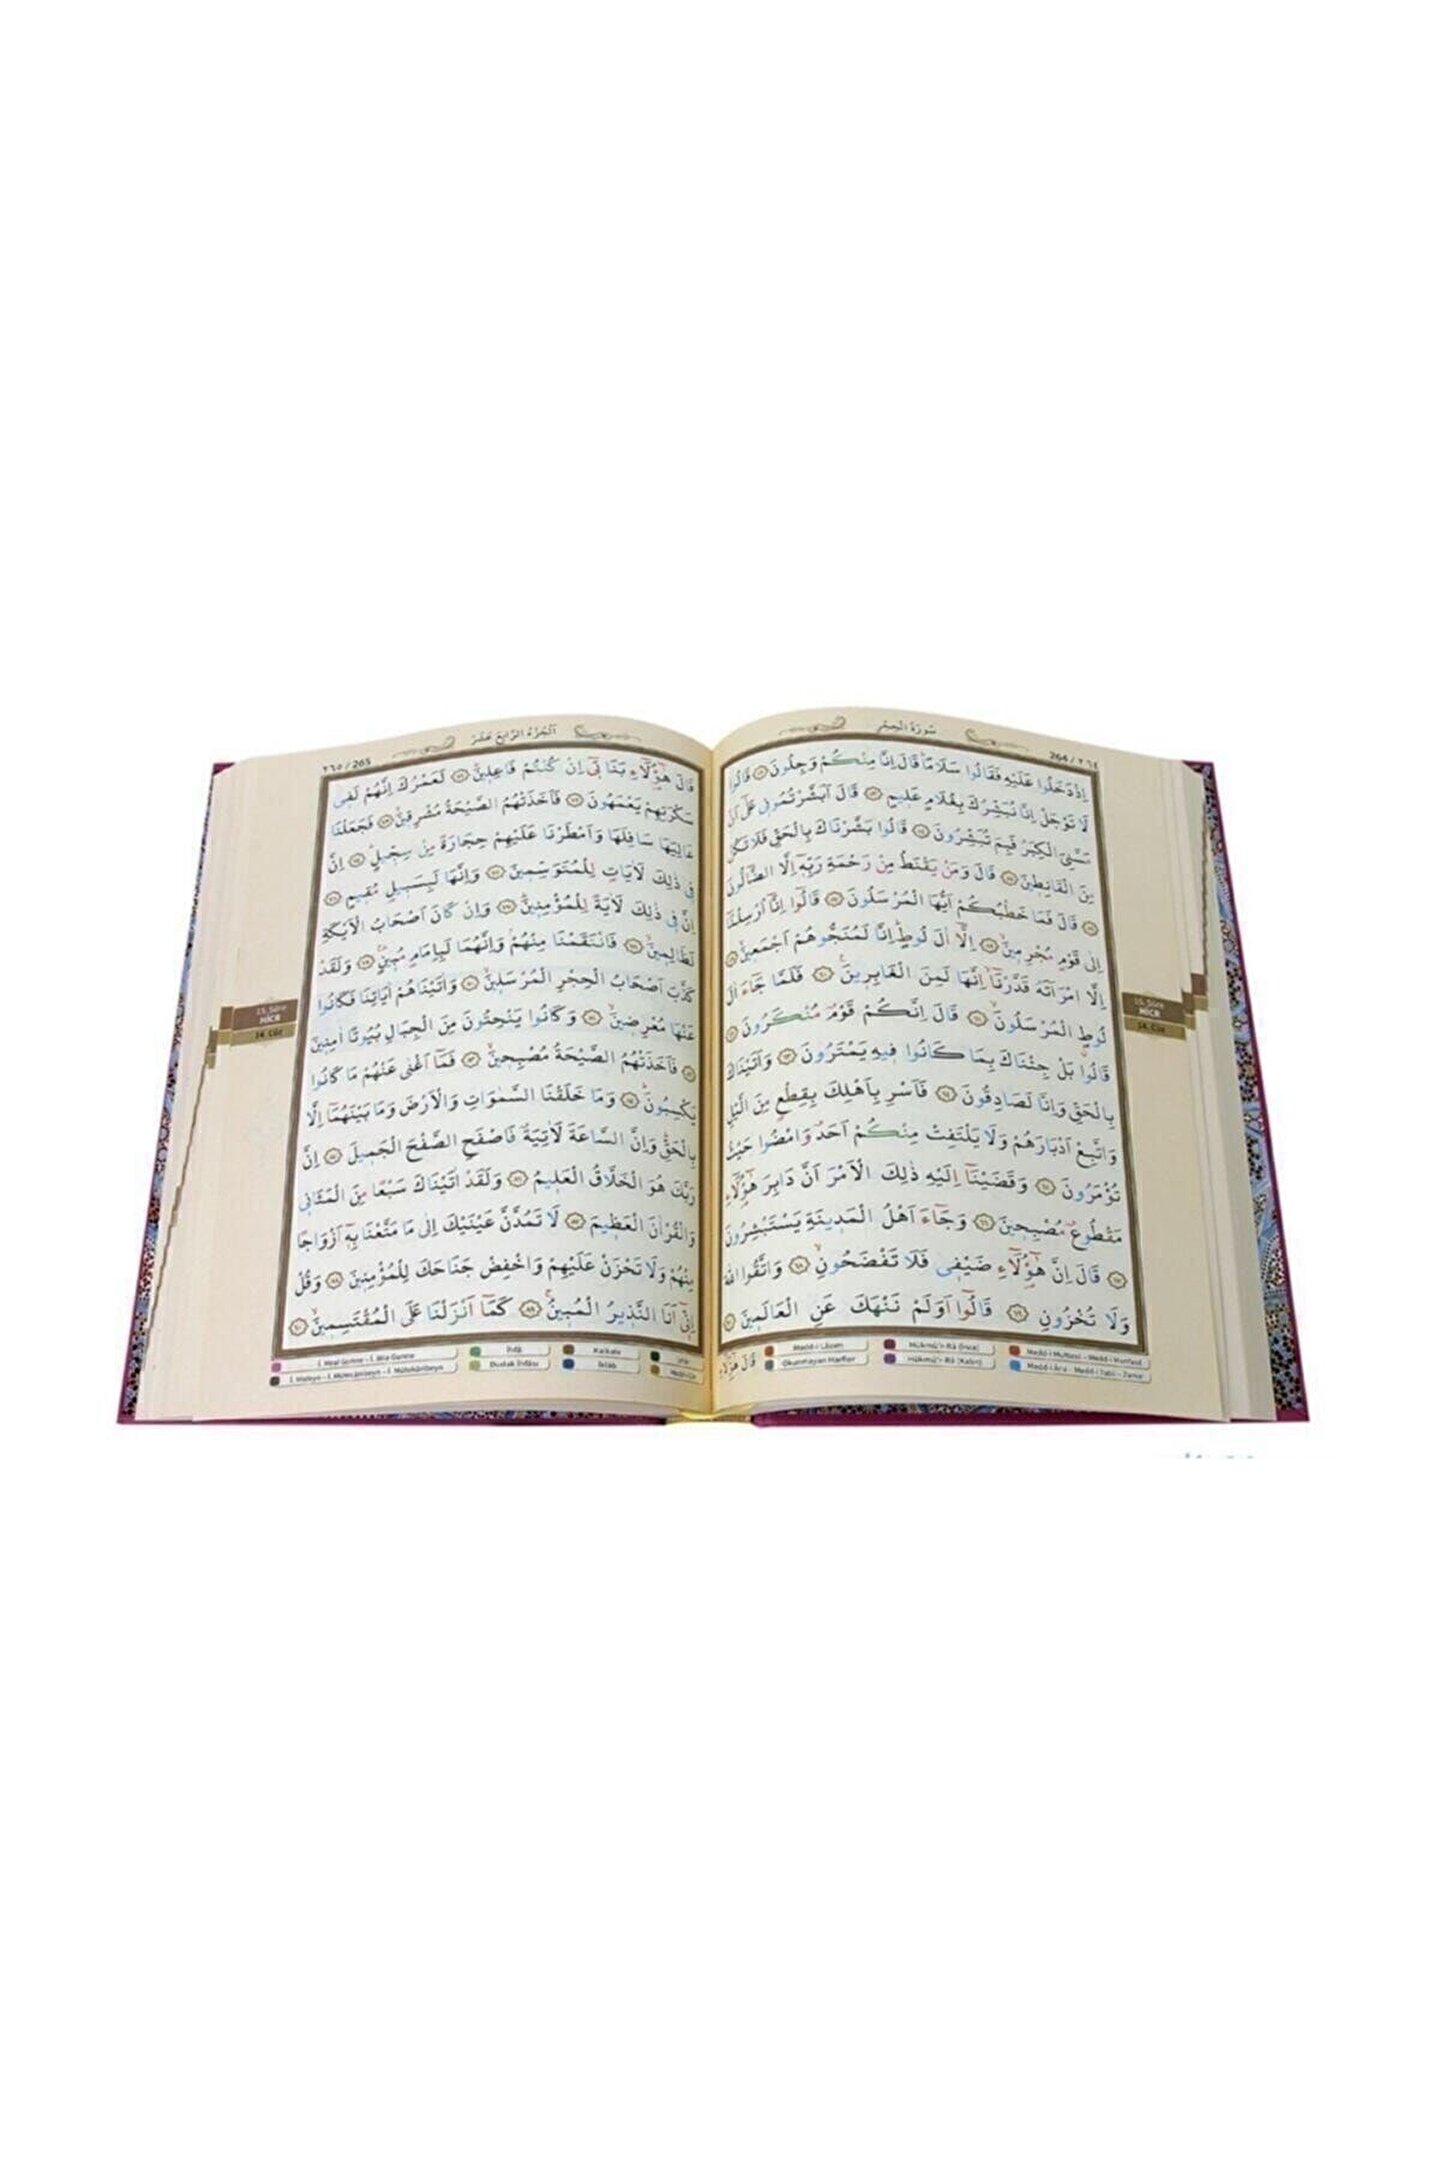 سُورَةُ الْحِجْرِ
264 / ٢٦٤
اِذْ دَخَلُوا عَلَيْهِ فَقَالُوا سَلَامًاۜ قَالَ اِنَّا مِنْكُمْ وَجِلُونَ ﴿٥٢﴾ قَالُوا
لَا تَوْجَلْ اِنَّا نُبَشِّرُكَ بِغُلَامٍ عَل۪يمٍ ﴿٥٣﴾ قَالَ اَبَشَّرْتُمُون۪ي عَلٰٓى اَنْ
مَسَّنِيَ الْكِبَرُ فَبِمَ تُبَشِّرُونَ ﴿٥٤﴾ قَالُوا بَشَّرْنَاكَ بِالْحَقِّ فَلَا تَكُنْ
مِنَ الْقَانِط۪ينَ ﴿٥٥﴾ قَالَ وَمَنْ يَقْنَطُ مِنْ رَحْمَةِ رَبِّه۪ٓ اِلَّا الضَّٓالُّونَ
﴿٥٦﴾ قَالَ فَمَا خَطْبُكُمْ اَيُّهَا الْمُرْسَلُونَ ﴿٥٧﴾ قَالُٓوا اِنَّٓا اُرْسِلْنَٓا
اِلٰى قَوْمٍ مُجْرِم۪ينَۙ ﴿٥٨﴾ اِلَّٓا اٰلَ لُوطٍۜ اِنَّا لَمُنَجُّوهُمْ اَجْمَع۪ينَۙ ﴿٥٩﴾
اِلَّا امْرَاَتَهُ قَدَّرْنَٓاۙ اِنَّهَا لَمِنَ الْغَابِر۪ينَ۟ ﴿٦٠﴾ فَلَمَّا جَٓاءَ اٰلَ
لُوطٍۨ الْمُرْسَلُونَۙ ﴿٦١﴾ قَالَ اِنَّكُمْ قَوْمٌ مُنْكَرُونَ ﴿٦٢﴾
قَالُوا بَلْ جِئْنَاكَ بِمَا كَانُوا ف۪يهِ يَمْتَرُونَ ﴿٦٣﴾ وَاَتَيْنَاكَ
بِالْحَقِّ وَاِنَّا لَصَادِقُونَ ﴿٦٤﴾ فَاَسْرِ بِاَهْلِكَ بِقِطْعٍ مِنَ الَّيْلِ
وَاتَّبِعْ اَدْبَارَهُمْ وَلَا يَلْتَفِتْ مِنْكُمْ اَحَدٌ وَامْضُوا حَيْثُ
تُؤْمَرُونَ ﴿٦٥﴾ وَقَضَيْنَٓا اِلَيْهِ ذٰلِكَ الْاَمْرَ اَنَّ دَابِرَ هٰٓؤُ۬لَٓاءِ
مَقْطُوعٌ مُصْبِح۪ينَ ﴿٦٦﴾ وَجَٓاءَ اَهْلُ الْمَد۪ينَةِ يَسْتَبْشِرُونَ
﴿٦٧﴾ قَالَ اِنَّ هٰٓؤُ۬لَٓاءِ ضَيْف۪ي فَلَا تَفْضَحُونِۙ ﴿٦٨﴾ وَاتَّقُوا اللّٰهَ
وَلَا تُخْزُونِ ﴿٦٩﴾ قَالُٓوا اَوَلَمْ نَنْهَكَ عَنِ الْعَالَم۪ينَ ﴿٧٠﴾
قَالَ هٰٓؤُ۬لَٓاءِ
Medd-i Lâzım
Hükmü'r-Râ (İnce)
Medd-i Muttasıl - Medd-i Munfasıl
Okunmayan Harfler
Hükmü'r-Râ (Kalın)
Medd-i Ârız - Medd-i Tabiî - Zamir
15. Sûre
HİCR
14. Cüz
اَلْجُزْءُ الرَّابِعَ عَشَرَ
٢٦٥ / 265
قَالَ هٰٓؤُ۬لَٓاءِ بَنَات۪ٓي اِنْ كُنْتُمْ فَاعِل۪ينَۜ ﴿٧١﴾ لَعَمْرُكَ اِنَّهُمْ لَف۪ي
سَكْرَتِهِمْ يَعْمَهُونَ ﴿٧٢﴾ فَاَخَذَتْهُمُ الصَّيْحَةُ مُشْرِق۪ينَۙ ﴿٧٣﴾ فَجَعَلْنَا
عَالِيَهَا سَافِلَهَا وَاَمْطَرْنَا عَلَيْهِمْ حِجَارَةً مِنْ سِجّ۪يلٍۜ ﴿٧٤﴾ اِنَّ
ف۪ي ذٰلِكَ لَاٰيَاتٍ لِلْمُتَوَسِّم۪ينَ ﴿٧٥﴾ وَاِنَّهَا لَبِسَب۪يلٍ مُق۪يمٍ ﴿٧٦﴾
اِنَّ ف۪ي ذٰلِكَ لَاٰيَةً لِلْمُؤْمِن۪ينَۜ ﴿٧٧﴾ وَاِنْ كَانَ اَصْحَابُ الْاَيْكَةِ
لَظَالِم۪ينَۙ ﴿٧٨﴾ فَانْتَقَمْنَا مِنْهُمْۢ وَاِنَّهُمَا لَبِاِمَامٍ مُب۪ينٍ۟ ﴿٧٩﴾ وَلَقَدْ
كَذَّبَ اَصْحَابُ الْحِجْرِ الْمُرْسَل۪ينَۙ ﴿٨٠﴾ وَاٰتَيْنَاهُمْ اٰيَاتِنَا فَكَانُوا
عَنْهَا مُعْرِض۪ينَۙ ﴿٨١﴾ وَكَانُوا يَنْحِتُونَ مِنَ الْجِبَالِ بُيُوتًا اٰمِن۪ينَ
﴿٨٢﴾ فَاَخَذَتْهُمُ الصَّيْحَةُ مُصْبِح۪ينَۙ ﴿٨٣﴾ فَمَٓا اَغْنٰى عَنْهُمْ مَا كَانُوا
يَكْسِبُونَۜ ﴿٨٤﴾ وَمَا خَلَقْنَا السَّمٰوَاتِ وَالْاَرْضَ وَمَا بَيْنَهُمَٓا اِلَّا
بِالْحَقِّۜ وَاِنَّ السَّاعَةَ لَاٰتِيَةٌ فَاصْفَحِ الصَّفْحَ الْجَم۪يلَ ﴿٨٥﴾ اِنَّ
رَبَّكَ هُوَ الْخَلَّاقُ الْعَل۪يمُ ﴿٨٦﴾ وَلَقَدْ اٰتَيْنَاكَ سَبْعًا مِنَ الْمَثَان۪ي
وَالْقُرْاٰنَ الْعَظ۪يمَ ﴿٨٧﴾ لَا تَمُدَّنَّ عَيْنَيْكَ اِلٰى مَا مَتَّعْنَا بِه۪ٓ اَزْوَاجًا
مِنْهُمْ وَلَا تَحْزَنْ عَلَيْهِمْ وَاخْفِضْ جَنَاحَكَ لِلْمُؤْمِن۪ينَ ﴿٨٨﴾ وَقُلْ
اِنّ۪ٓي اَنَا النَّذ۪يرُ الْمُب۪ينُۚ ﴿٨٩﴾ كَمَٓا اَنْزَلْنَا عَلَى الْمُقْتَسِم۪ينَۙ ﴿٩٠﴾
İ. Meal Gunne - İ. Bila Gunne
İhfâ
Kalkale
İ. Misleyn - İ. Mütecâniseyn - İ. Mütekâribeyn
Dudak İhfâsı
İklâb
15. Sûre
HİCR
14. Cüz